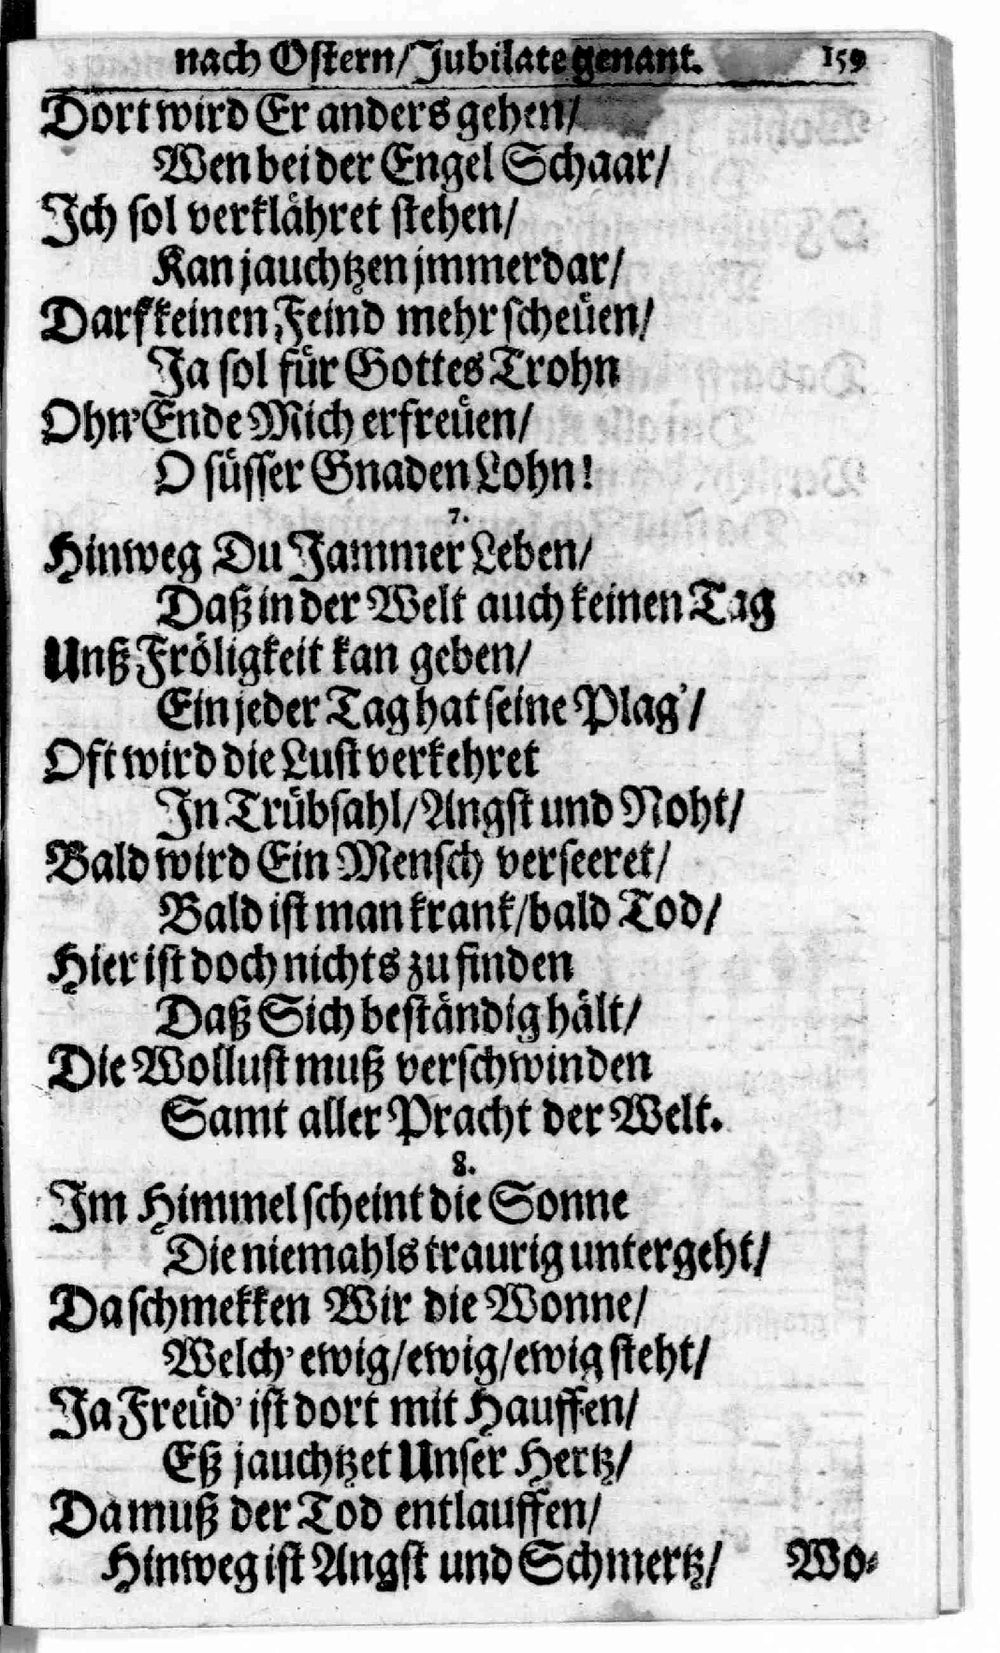 nach Ostern/Jubilate genant. 159
Dort wird Er anders gehen/
Wen bei der Engel Schaar/
Ich sol verklähret stehen/
Kan jauchtzen jmmerdar/
Darf keinen Feind mehr scheüen/
Ja sol für Gottes Trohn
Ohn' Ende Mich erfreüen/
O süsser Gnaden Lohn!
7.
Hinweg Du Jammer Leben/
Daß in der Welt auch keinen Tag
Unß Fröligkeit kan geben/
Ein jeder Tag hat seine Plag'/
Oft wird die Lust verkehret
In Trübsahl/Angst und Noht/
Bald wird Ein Mensch verseeret/
Bald ist man krank/bald Tod/
Hier ist doch nichts zu finden
Daß Sich beständig hält/
Die Wollust muß verschwinden
Samt aller Pracht der Welt.
8.
Im Himmel scheint die Sonne
Die niemahls traurig untergeht/
Da schmekken Wir die Wonne/
Welch' ewig/ewig/ewig steht/
Ja Freüd' ist dort mit Hauffen/
Eß jauchtzet Unser Hertz/
Da muß der Tod entlauffen/
Hinweg ist Angst und Schmertz/ Wo-